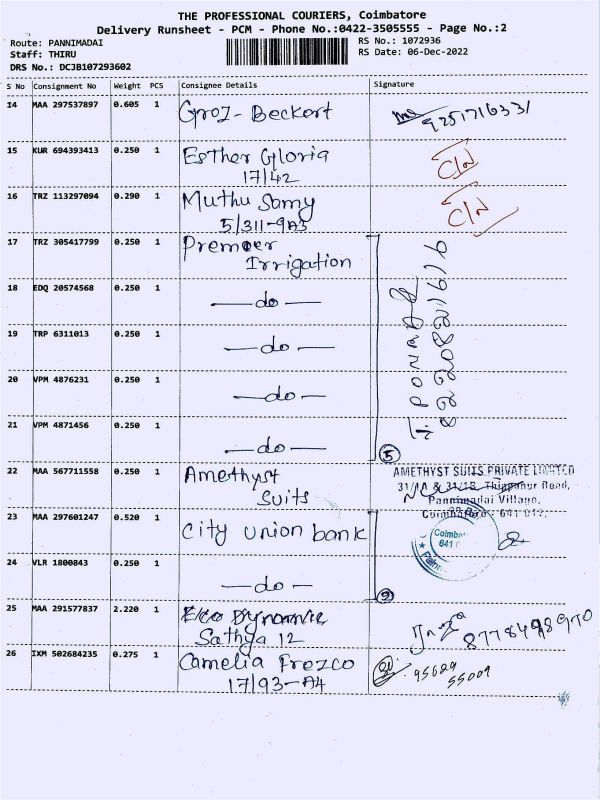 THE PROFESSIONAL COURIERS, Coimbatore
Delivery Runsheet - PCM - Phone No.:0422-3505555 - Page No.:2
Route: PANNIMADAI
RS No.: 1072936
Staff: THIRU
RS Date: 06-Dec-2022
DRS No.: DCJB107293602
S No Consignment No Weight PCS Consignee Details Signature
14 MAA 297537897 0.605 1 Groz-Beckert
9251716331
15 KUR 694393413 0.250 1 Esther Gloria
17/42
16 TRZ 113297094 0.290 1 Muthu Samy
5/311-9A3
17 TRZ 305417799 0.250 1 Premier
Irrigation
18 EDQ 20574568 0.250 1 —do—
19 TRP 6311013 0.250 1 —do—
20 VPM 4876231 0.250 1 —do—
21 VPM 4871456 0.250 1 —do—
5
22 MAA 567711558 0.250 1 Amethyst
Suits
AMETHYST SUITS PRIVATE LIMITED
31/1A & 31/1B, Thippanur Road,
Pannimadai Village,
Coimbatore - 641 017.
23 MAA 297601247 0.520 1 City union bank
24 VLR 1800843 0.250 1 —do—
25 MAA 291577837 2.220 1 Eco Dynamic
Sathya 12
8778498970
26 IXM 502684235 0.275 1 Camelia Frozco
17/93-A4
95629
55009